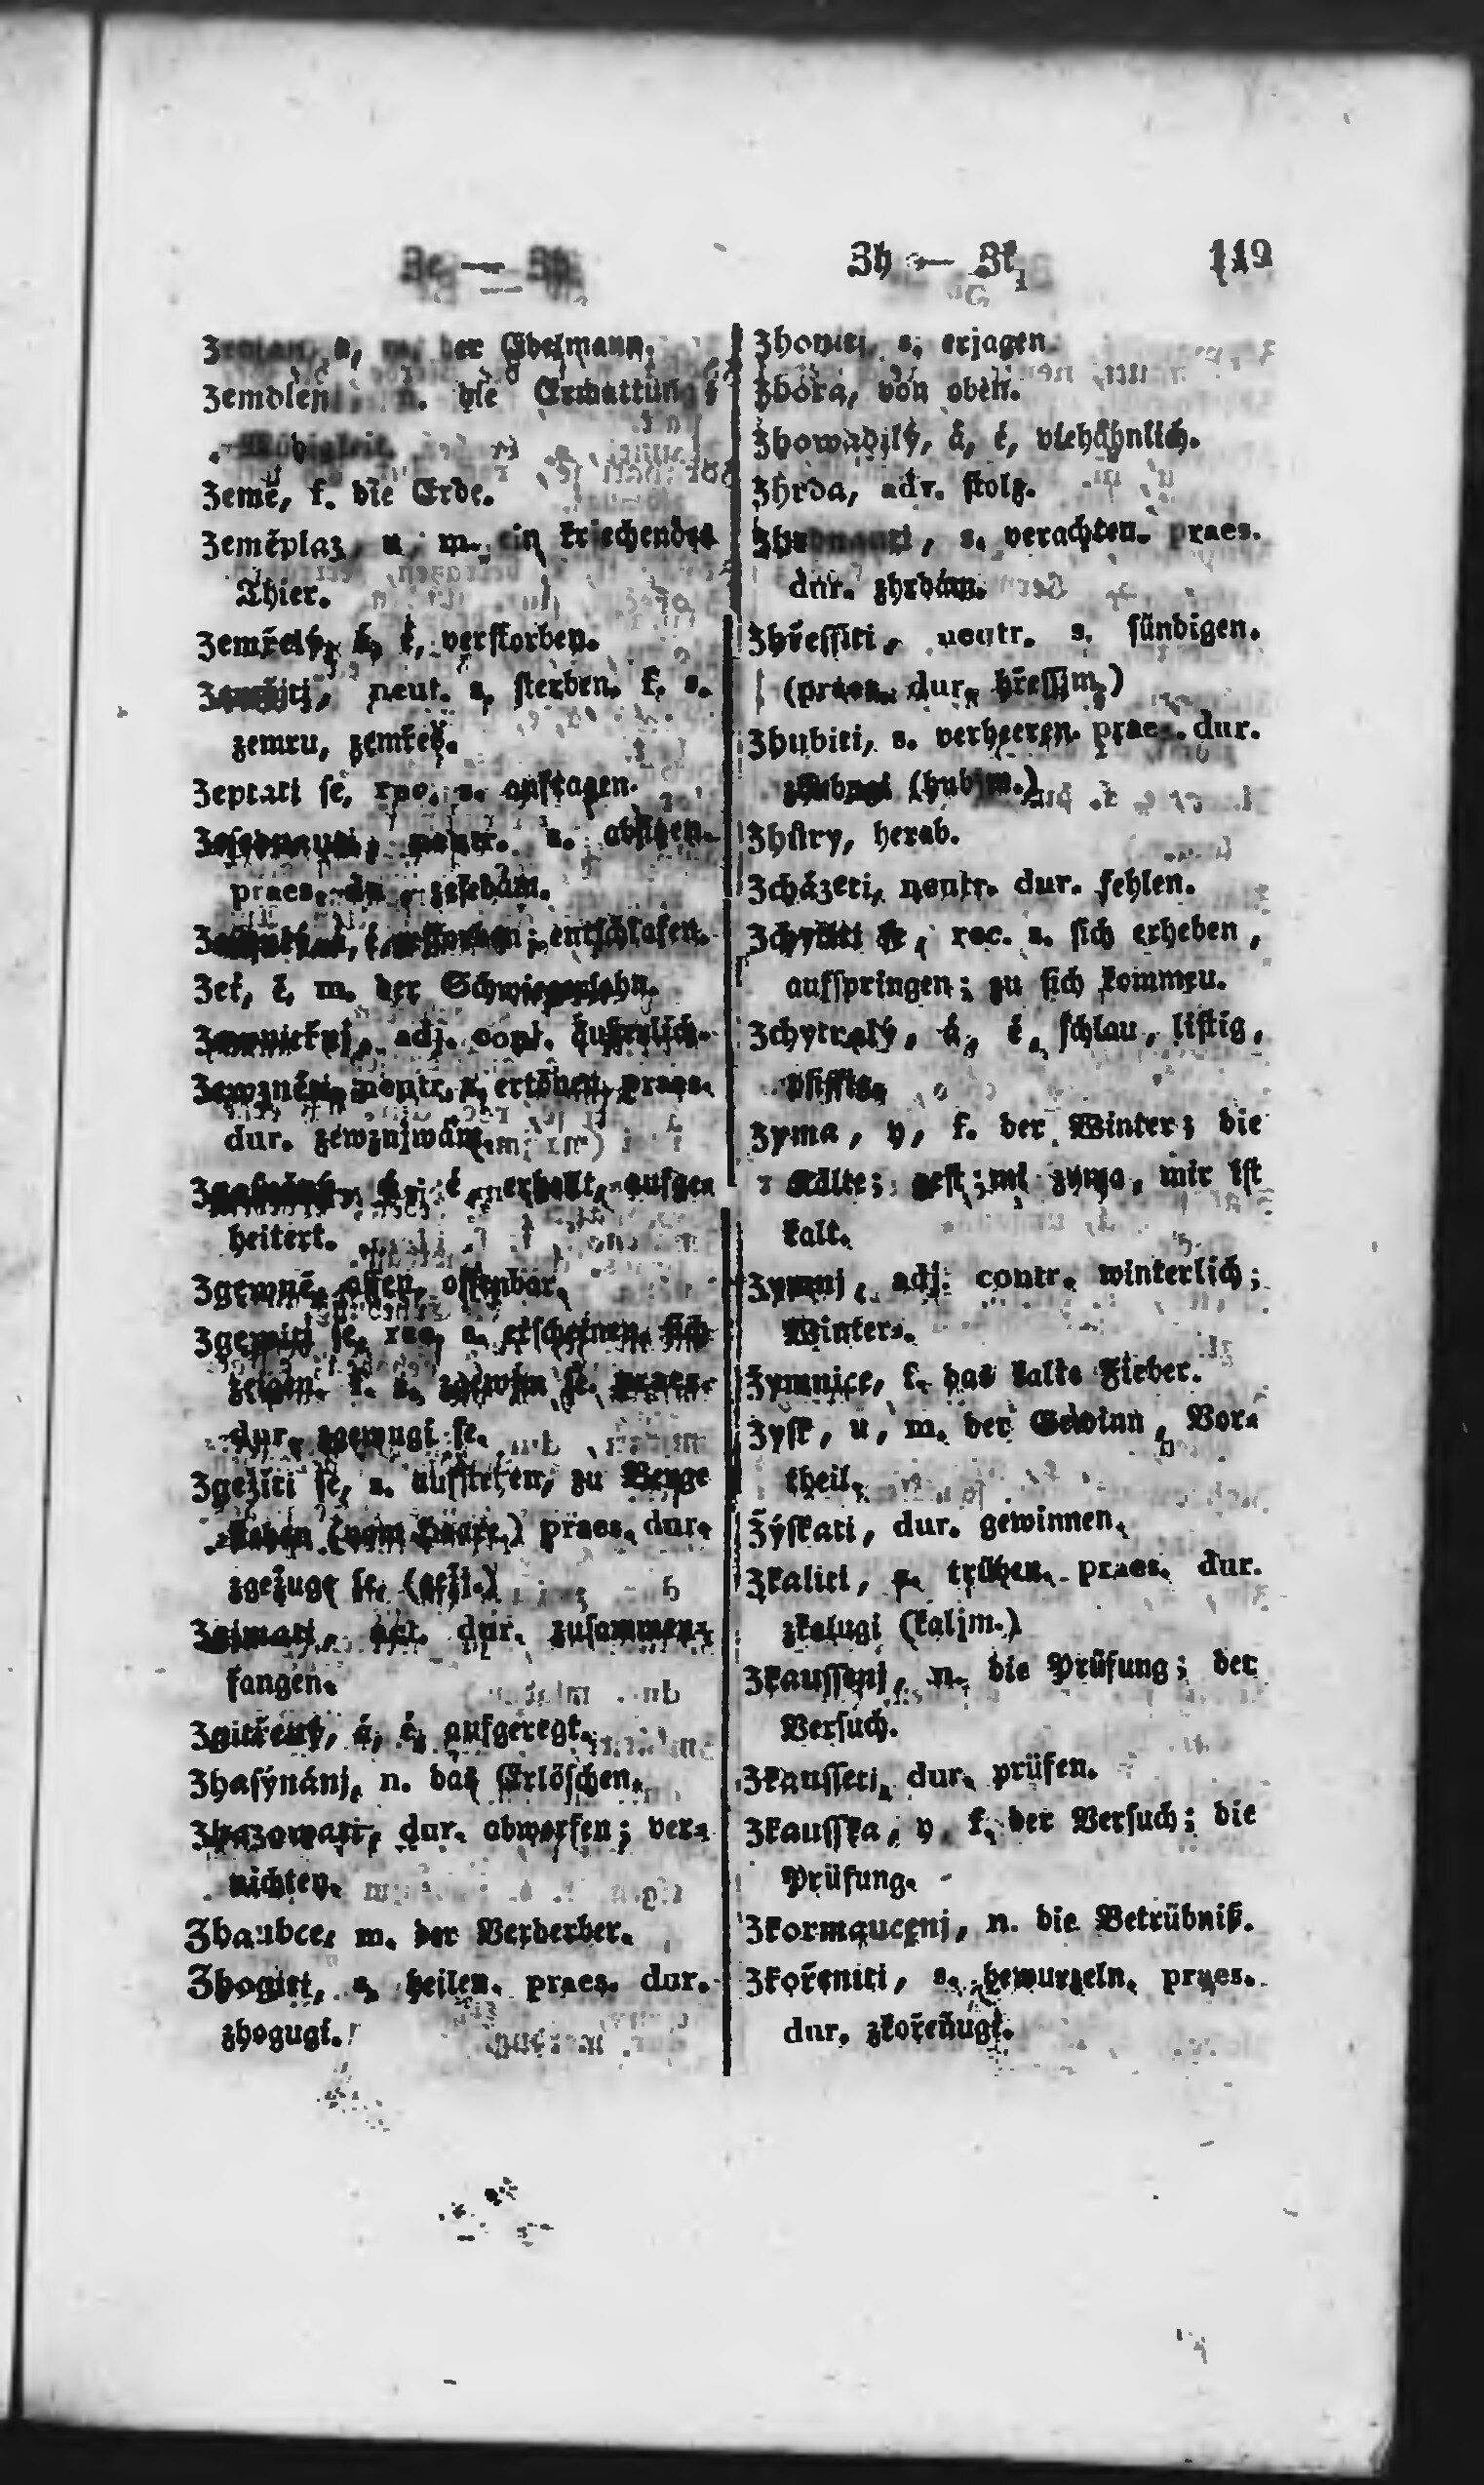 Ze — Zh
Zeman, a, m. der Edelmann.
Zemdlenj, n. die Ermattung,
Müdigkeit.
Země, f. die Erde.
Zeměplaz, u, m. ein kriechendes
Thier.
Zemřelý, á, é, verstorben.
neut. s. sterben. f. s.
zemru, zemřeš.
Zeptati se, rec. s. anfragen.
neutr. s. absitzen.
praes. dur. zesedám.
á, é, entschlafen.
Zeť, ě, m. der Schwiegersohn.
Zewnitřnj, adj. cont. äußerlich.
Zewznéti, neutr. s. ertönen, praes.
dur. zewznjwám.
á, é, erhellt, aufge-
heitert.
Zgewně, offen, offenbar.
Zgewiti se, rec. s. erscheinen, sich
zeigen. f. s. zgewjm se. praes.
dur. zgewugi se.
Zgežiti se, s. aufstehen, zu Berge
stehen (vom Haare.) praes. dur.
zgežugi se. (gežj.)
Zgjmati, act. dur. zusammen-
fangen.
Zgitřený, á, é, aufgeregt.
Zhasýnánj, n. das Erlöschen.
Zhazowati, dur. abwerfen; ver-
nichten.
Zhaubce, m. der Verderber.
Zhogiti, s. heilen. praes. dur.
zhogugi.
Zh — Zk
119
Zhoniti, s. erjagen.
Zhora, von oben.
Zhowadilý, á, é, viehähnlich.
Zhrda, adv. stolz.
Zhrdnauti, s. verachten. praes.
dur. zhrdám.
Zhřessiti, neutr. s. sündigen.
(praes. dur. hřessjm.)
Zhubiti, s. verheeren. praes. dur.
zhubugi (hubjm.)
Zhůry, herab.
Zcházeti, neutr. dur. fehlen.
Zchytiti se, rec. s. sich erheben,
aufspringen; zu sich kommen.
Zchytralý, á, é, schlau, listig,
pfiffig.
Zyma, y, f. der Winter; die
Kälte; gest mi zyma, mir ist
kalt.
Zymnj, adj. contr. winterlich;
Winter-.
Zymnice, f. das kalte Fieber.
Zysk, u, m. der Gewinn, Vor-
theil.
Zýskati, dur. gewinnen.
Zkaliti, s. trüben. praes. dur.
zkalugi (kaljm.)
Zkaussenj, n. die Prüfung; der
Versuch.
Zkausseti, dur. prüfen.
Zkausska, y, f. der Versuch; die
Prüfung.
Zkormaucenj, n. die Betrübniß.
Zkořeniti, s. bewurzeln. praes.
dur. zkořeňugi.